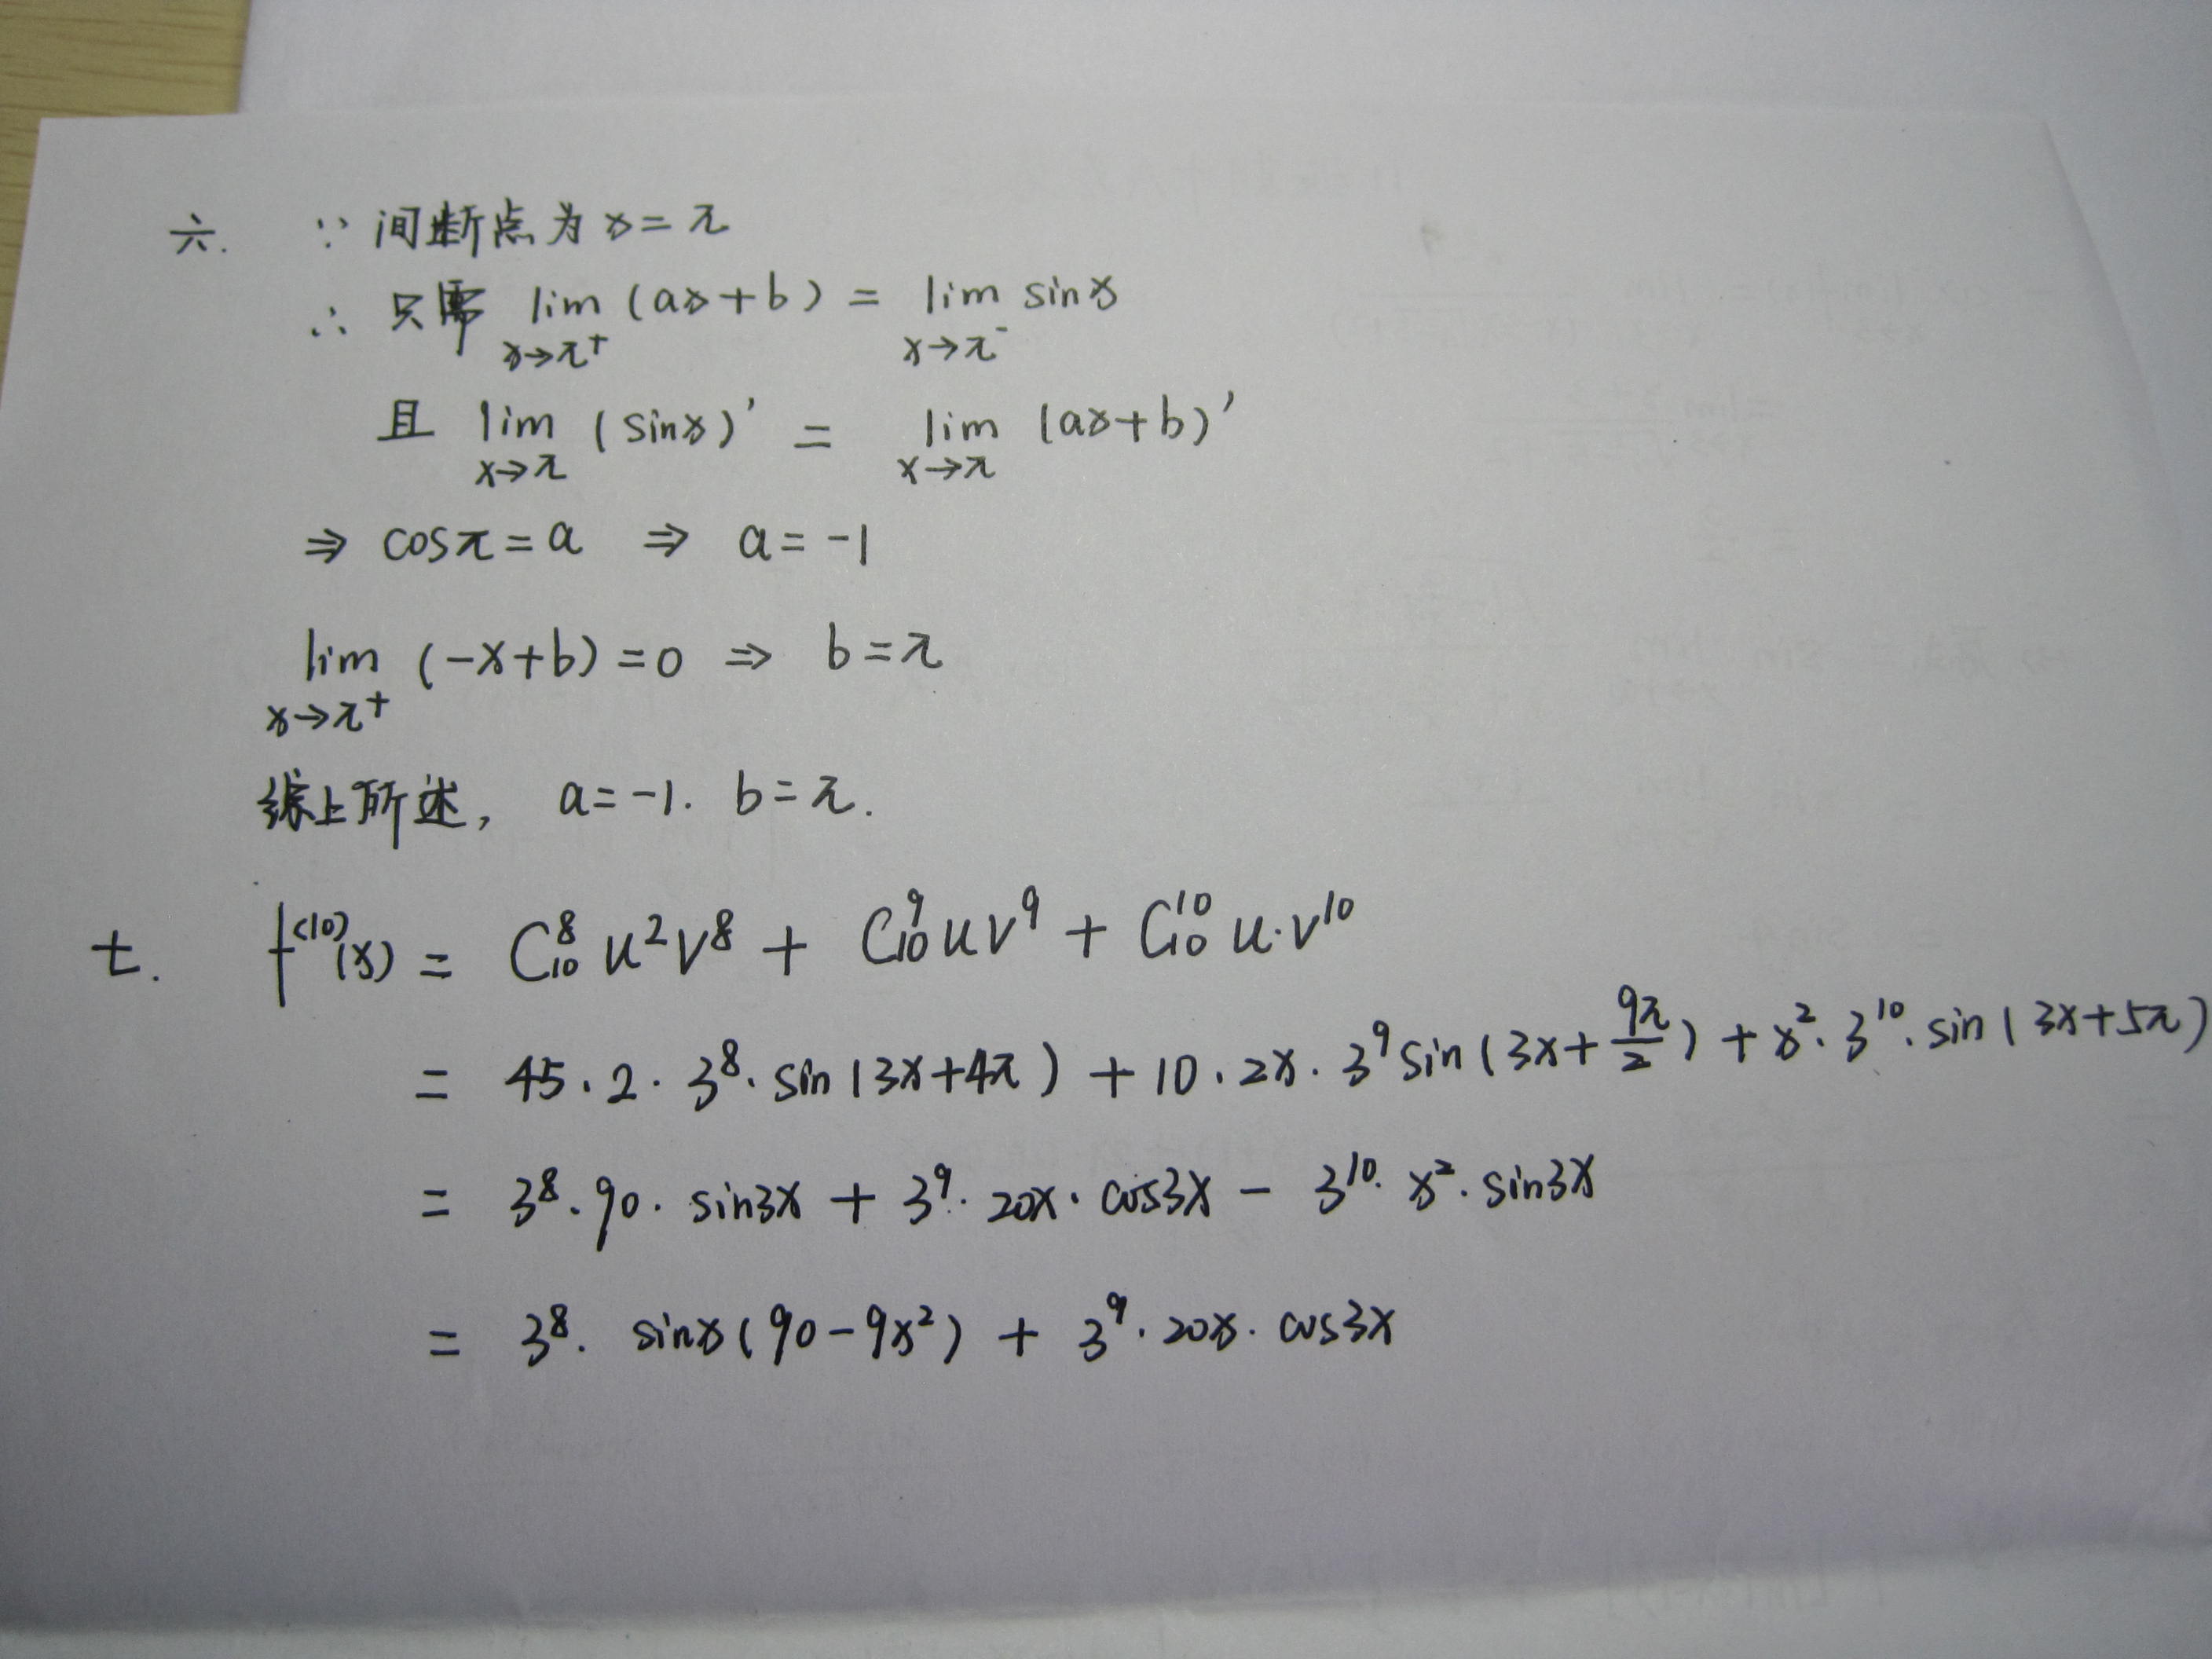 六. ∵ 间断点为 x=π
∴ 只需 lim (ax+b) = lim sinx
x→π⁺ x→π⁻
且 lim (sinx)' = lim (ax+b)'
x→π x→π
⇒ cosπ=a ⇒ a=-1
lim (-x+b)=0 ⇒ b=π
x→π⁺
综上所述, a=-1. b=π.
七. f⁽¹⁰⁾(x) = C₁₀⁸ u²v⁸ + C₁₀⁹ uv⁹ + C₁₀¹⁰ u·v¹⁰
= 45·2·3⁸·sin(3x+4π) + 10·2x·3⁹sin(3x+9π/2) + x²·3¹⁰·sin(3x+5π)
= 3⁸·90·sin3x + 3⁹·20x·cos3x - 3¹⁰·x²·sin3x
= 3⁸· sinx(90-9x²) + 3⁹·20x·cos3x